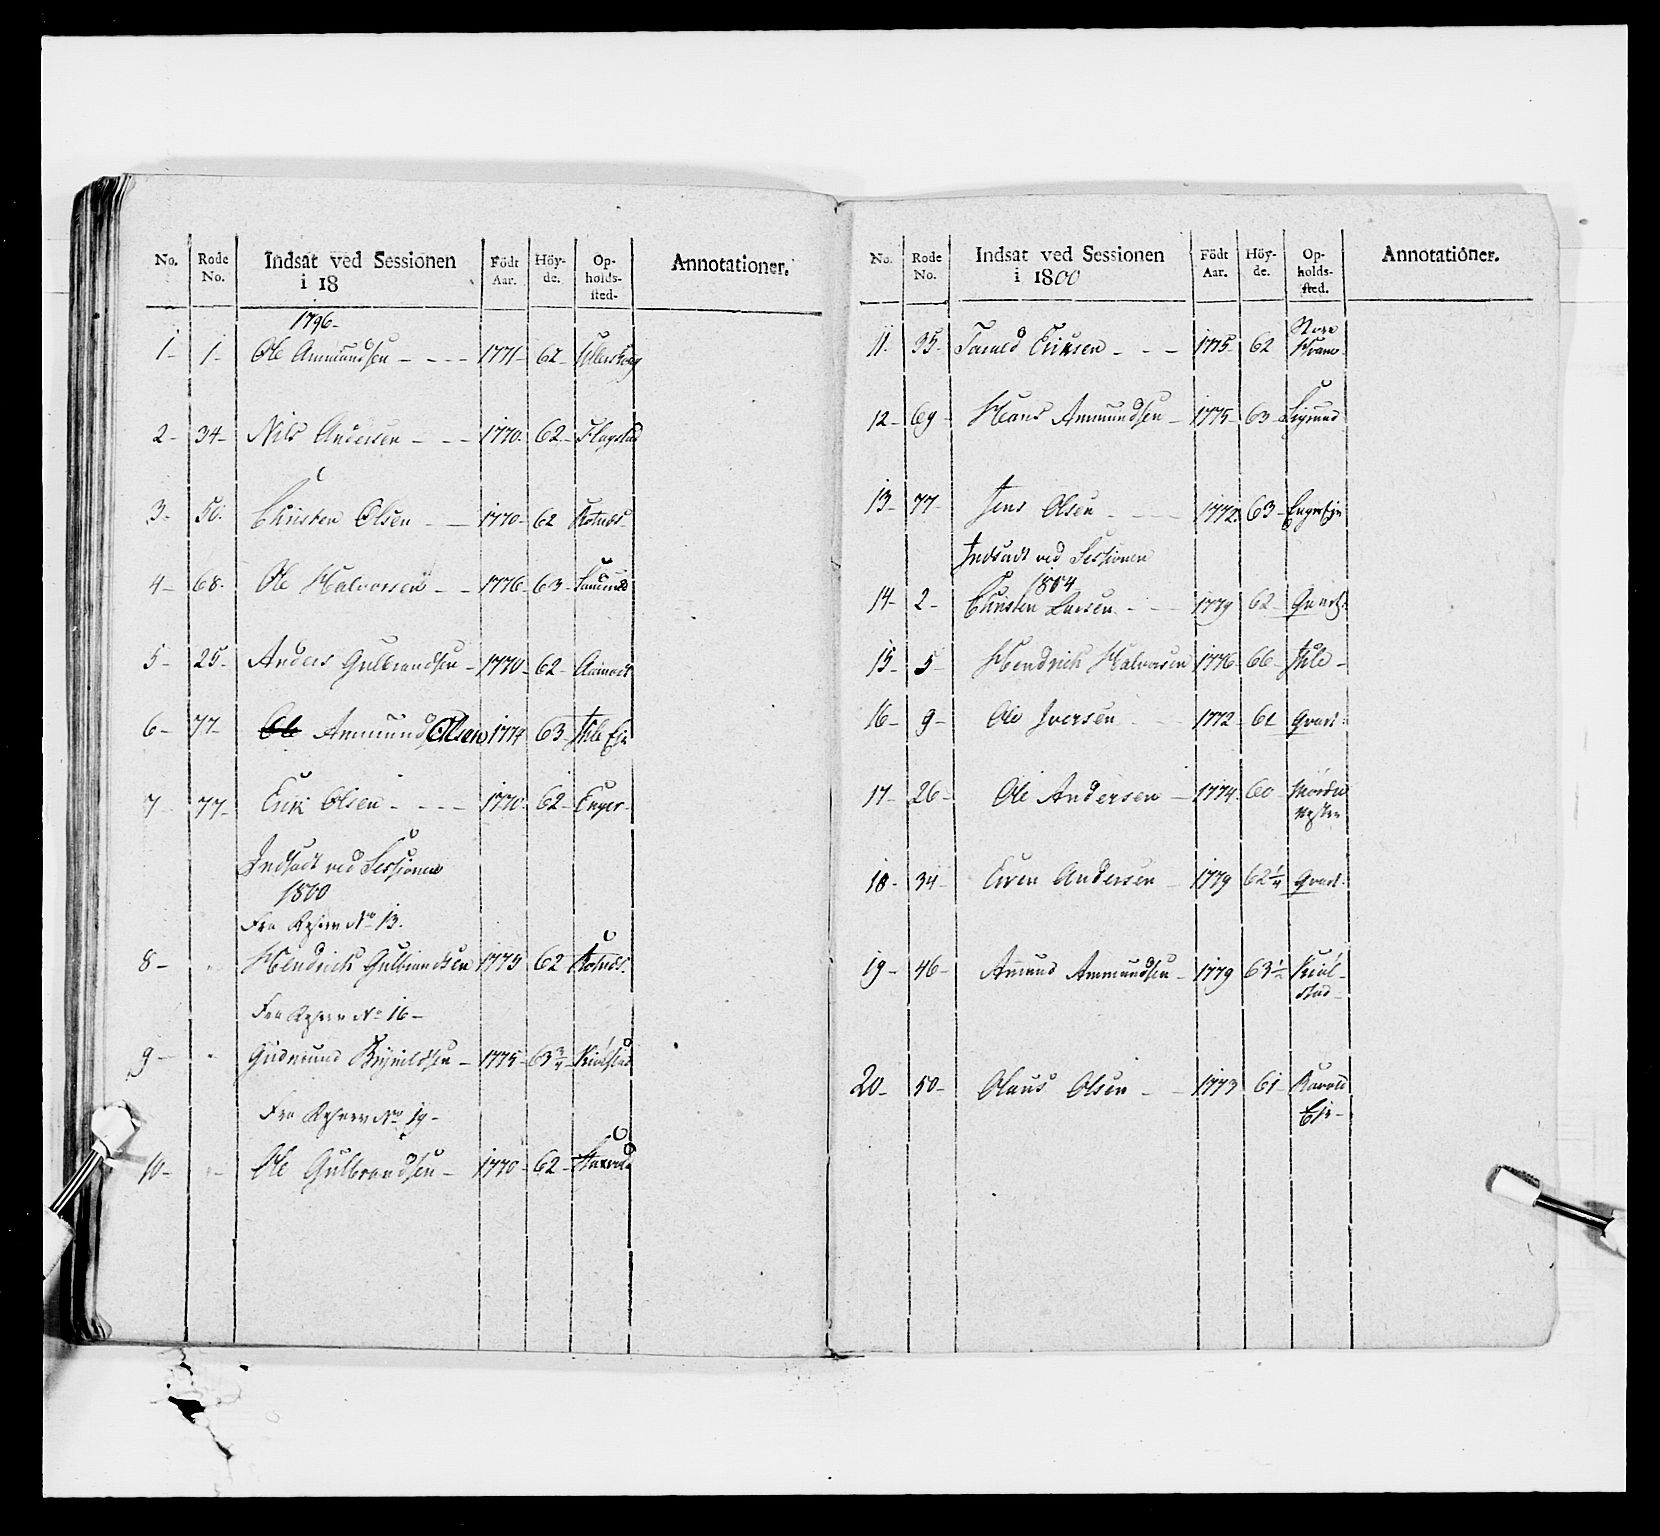 No. Rode No. Indsat ved Sessionen i 18 Födt Aar. Höy-de. Op-holds-sted. Annotationer.
1796-
1- 1- Ole Ammundsen - - - 1771- 62-
2- 34- Nils Andersen - - - 1770- 62- Flagstad
3- 50- Christen Olsen - - 1770- 62 Rotnæs
4- 68- Ole Halvorsen - - 1776- 63-
5- 25- Anders Gulbrandsen - 1770- 62-
6- 77- Ole Ammund Olsen 1774 63- Ihle Eje
7 77- Erik Olsen - - - - 1770- 62- Enger-
Indsadt ved Sessionen
1800
Fra Reserv No 13.
8- " Hendrich Gulbrandsen 1775 62 Rotnæs.
Fra Reserv No 16-
9- " Gudmund Brynildsen - 1775- 63 3/4 Kiølstad
Fra Reserv No 19-
10- " Ole Gulbrandsen - 1770- 62-
No. Rode No. Indsat ved Sessionen i 1800 Födt Aar. Höy-de. Op-holds-sted. Annotationer.
Store
11. 35- Eriksen - - - 1775- 62
12- 69- Hans Ammundsen - 1775- 63-
13- 77- Jens Olsen - - - 1772- 63- Enger Eje
Indsadt ved Sessionen
1804
14- 2- Christen Larsen - - - 1779 62-
15- 5- Hendrich Halvorsen 1776- 66- Ihle-
16- 9- Ole Iversen - - 1772- 61
17- 26- Ole Andersen - 1774- 60
18- 34- Even Andersen - 1779 62 1/4
19- 46- Amund Ammundsen - 1779 63 1/2 Kiøl-
stad-
20- 50- Olaus Olsen - - 1773 61-
Eje-